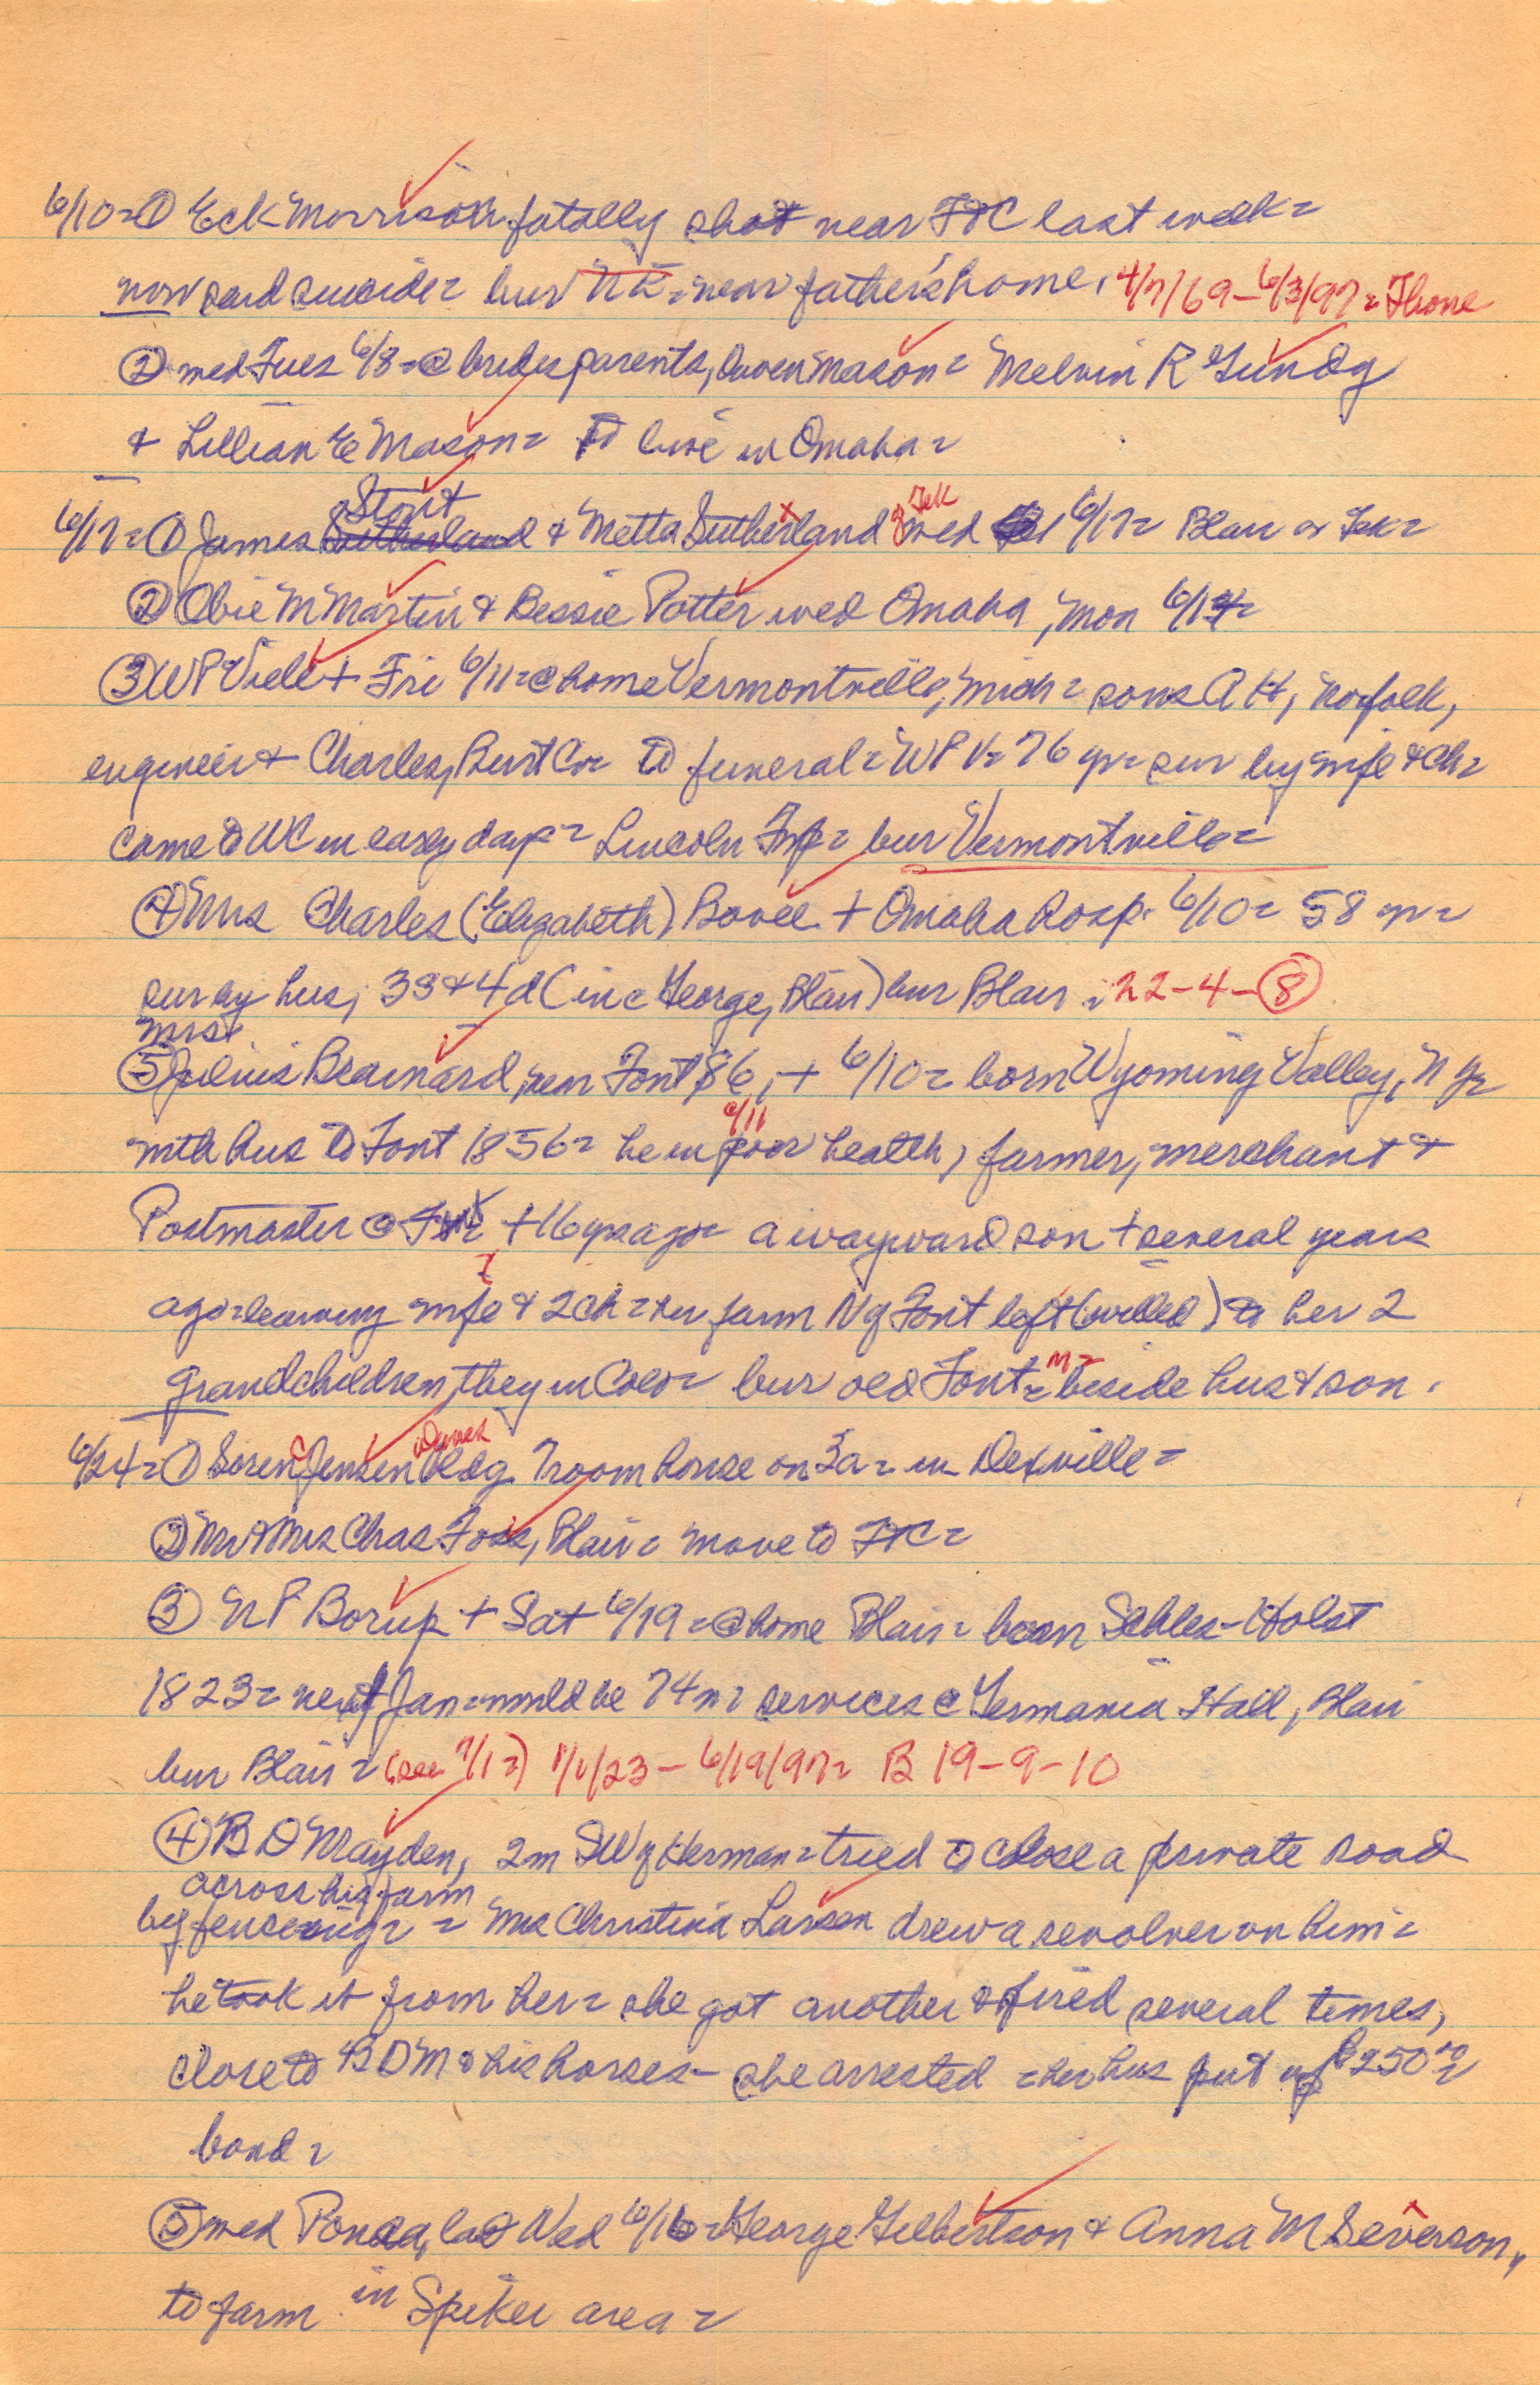 6/10= ① Eck Morrison fatally shot near FtC last week=
now said suicide= bur NE= near father's home. 4/7/69 - 6/3/97= Fhome
② wed Tues 6/8= @ brides parents, Owen Mason= Melvin R Gundy
& Lillian E Mason= to live in Omaha=
Stout
6/17= ① James Sutherland & Metta Sutherland wed 6/17= Blair or Tek=
Tek
② Obie M Martin & Bessie Potter wed Omaha, Mon 6/14=
③ WP Viele + Fri 6/11= @ home Vermontville, Mich= sons A H, Norfolk,
engineer & Charles, Burt Co= to funeral= WP V= 76 yr= sur by wife & ch=
came to WC in early days= Lincoln Twp= bur Vermontville=
④ Mrs Charles (Elizabeth) Bovee + Omaha hosp. 6/10= 58 yr=
sur by hus, 3S & 4d (inc George, Blair) bur Blair = 22-4-⑧
Mrs
⑤ Julius Brainard, near Font, 86, + 6/10= born Wyoming Valley, N Y=
6/11
with hus to Font 1856= he in poor health, farmer, merchant &
Postmaster @ Font + 16 yrs ago= a wayward son + several years
ago= leaving wife & 2 ch= her farm N of Font left (willed) to her 2
grandchildren, they in Colo= bur old Font= beside hus & son.
6/24= ① Soren Jensen bldg 7 room house on 3a= in Dexville=
② Mr & Mrs Chas Foss, Blair= move to FtC=
③ N P Borup + Sat 6/19= @ home Blair= born Schles-Holst
1823= next Jan= would be 74= services @ Germania Hall, Blair
bur Blair= (see 7/1=) 1/1/23 - 6/19/97= B 19-9-10
④ B D Mayden, 2m SW of Herman= tried to close a private road
across his farm
by fencing= = Mrs Christina Larsen drew a revolver on him=
he took it from her= she got another & fired several times,
close to B D M & his horses- she arrested = her hus put up $250.00
bond=
⑤ wed Ponca, Wed 6/16= George Gilbertson & Anna M Severson,
to farm in Spiker area=